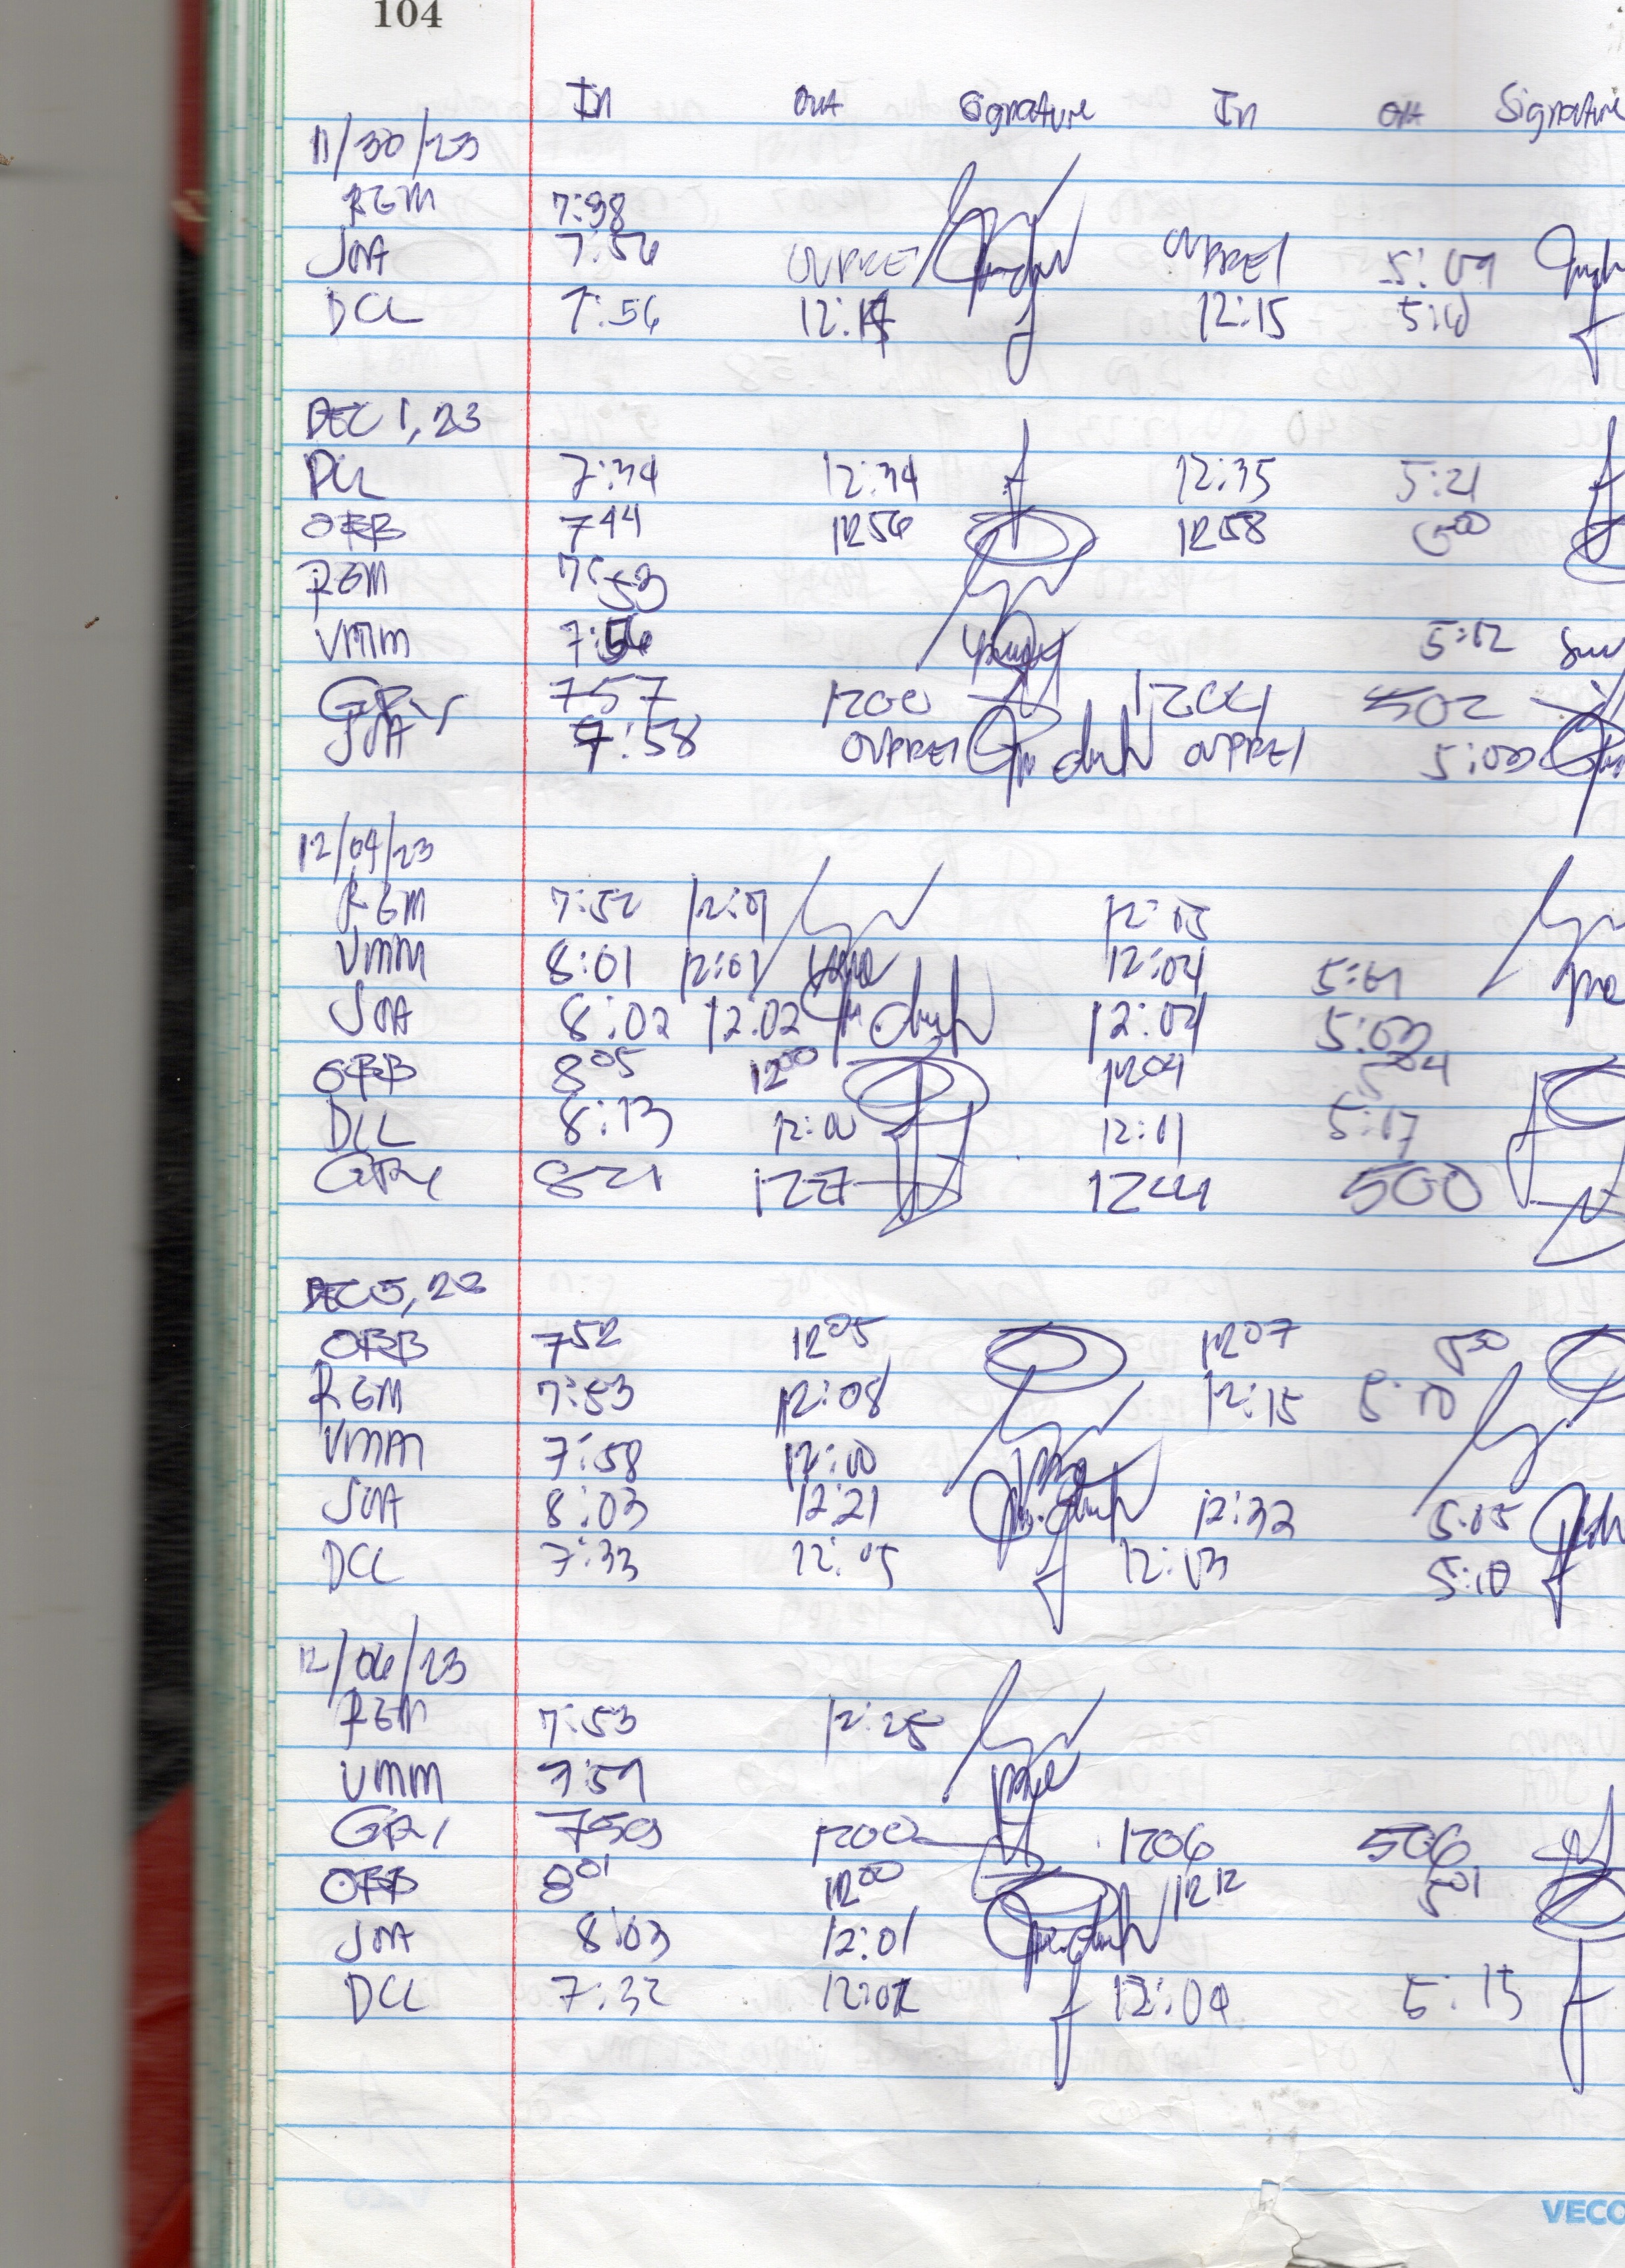 104
In Out Signature In Out Signature
11/30/23
RGM 7:38
JOA 7:56 OVPREI OVPREI 5:09
DCL 7:56 12:15
DEC 1, 23
DCL 7:34 12:34 12:35 5:21
OBB 7 44 12 56 12 58 5 00
RGM 7:53
VMM 7:56 5:02
757 1200 1204 502
JOA 7:58 OVPREI OVPREI 5:00
12/04/23
RGM 7:52 12:01 12:05
VMM 8:01 12:01 12:04 5:01
JOA 8:02 12:02 12:04 5:03
OBB 8 05 12 00 12 04 5 04
DCL 8:13 12:00 12:01 5:17
821 1204 500
DEC 5, 23
OBB 7 52 12 05 12 07 5 30
RGM 7:53 12:08 12:15 5:10
VMM 7:58 12:00
JOA 8:03 12:21 12:32 5:05
DCL 7:33 12:05 12:13 5:10
12/06/23
RGM 7:53 12:25
VMM 7:59
759 1200 1206 506
OBB 8 01 12 00 12 12 5 01
JOA 8:03 12:01
DCL 7:32 12:02 12:04 5:15
VECO